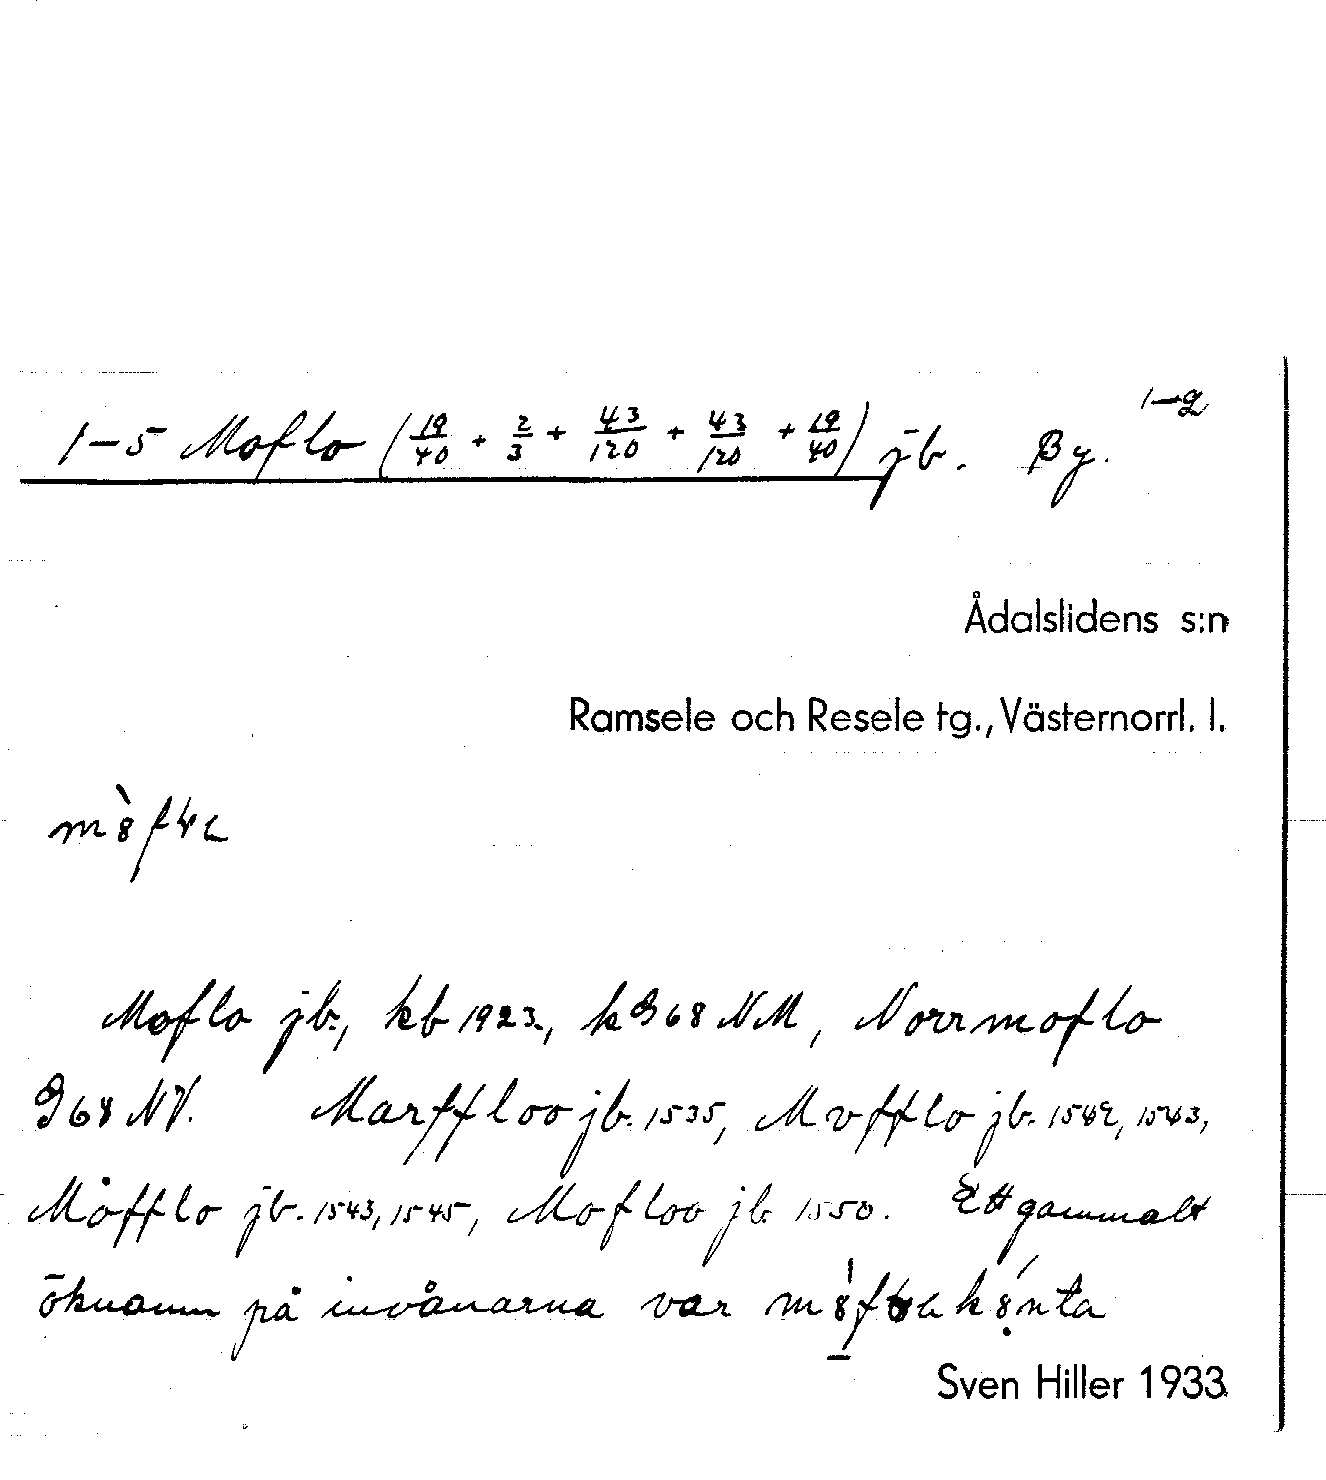 1–2
1–5 Moflo (19/40 + 2/3 + 43/120 + 43/120 + 19/40) jb. By.
Ådalslidens s:n
Ramsele och Resele tg., Västernorrl. l.
Moflo jb., kb 1923., k G68 NM, Norrmoflo
G68 NV. Marffloo jb. 1535, Mofflo jb. 1542, 1543,
Måfflo jb. 1543, 1545, Mofloo jb 1550. Ett gammalt
öknamn på invånarna var
Sven Hiller 1933